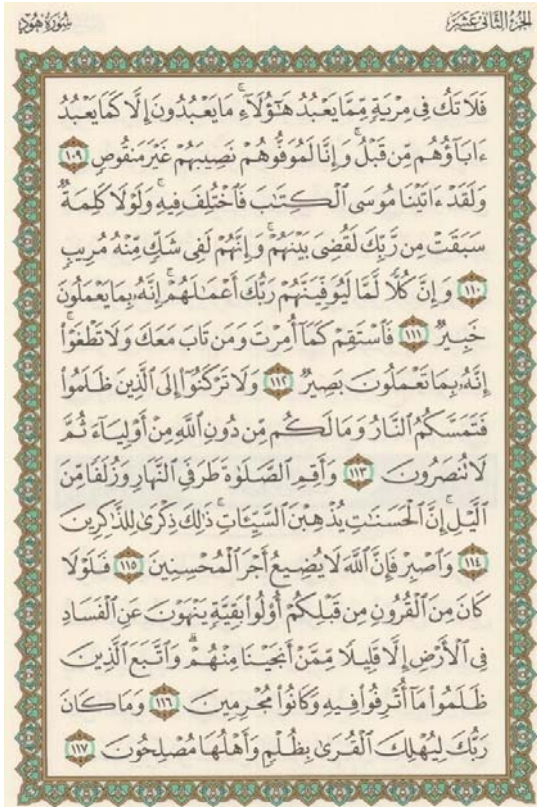 الجزء الثاني عشر
سورة هود
فَلَا تَكُ فِي مِرْيَةٍ مِّمَّا يَعْبُدُ هَٰٓؤُلَآءِ ۚ مَا يَعْبُدُونَ إِلَّا كَمَا يَعْبُدُ
ءَابَآؤُهُم مِّن قَبْلُ ۚ وَإِنَّا لَمُوَفُّوهُمْ نَصِيبَهُمْ غَيْرَ مَنقُوصٍ ١٠٩
وَلَقَدْ ءَاتَيْنَا مُوسَى ٱلْكِتَٰبَ فَٱخْتُلِفَ فِيهِ ۚ وَلَوْلَا كَلِمَةٌ
سَبَقَتْ مِن رَّبِّكَ لَقُضِيَ بَيْنَهُمْ ۚ وَإِنَّهُمْ لَفِي شَكٍّ مِّنْهُ مُرِيبٍ
١١٠ وَإِنَّ كُلًّا لَّمَّا لَيُوَفِّيَنَّهُمْ رَبُّكَ أَعْمَٰلَهُمْ ۚ إِنَّهُۥ بِمَا يَعْمَلُونَ
خَبِيرٌ ١١١ فَٱسْتَقِمْ كَمَآ أُمِرْتَ وَمَن تَابَ مَعَكَ وَلَا تَطْغَوْا۟ ۚ
إِنَّهُۥ بِمَا تَعْمَلُونَ بَصِيرٌ ١١٢ وَلَا تَرْكَنُوٓا۟ إِلَى ٱلَّذِينَ ظَلَمُوا۟
فَتَمَسَّكُمُ ٱلنَّارُ وَمَا لَكُم مِّن دُونِ ٱللَّهِ مِنْ أَوْلِيَآءَ ثُمَّ
لَا تُنصَرُونَ ١١٣ وَأَقِمِ ٱلصَّلَوٰةَ طَرَفَيِ ٱلنَّهَارِ وَزُلَفًا مِّنَ
ٱلَّيْلِ ۚ إِنَّ ٱلْحَسَنَٰتِ يُذْهِبْنَ ٱلسَّيِّـَٔاتِ ۚ ذَٰلِكَ ذِكْرَىٰ لِلذَّٰكِرِينَ
١١٤ وَٱصْبِرْ فَإِنَّ ٱللَّهَ لَا يُضِيعُ أَجْرَ ٱلْمُحْسِنِينَ ١١٥ فَلَوْلَا
كَانَ مِنَ ٱلْقُرُونِ مِن قَبْلِكُمْ أُو۟لُوا۟ بَقِيَّةٍ يَنْهَوْنَ عَنِ ٱلْفَسَادِ
فِي ٱلْأَرْضِ إِلَّا قَلِيلًا مِّمَّنْ أَنجَيْنَا مِنْهُمْ ۗ وَٱتَّبَعَ ٱلَّذِينَ
ظَلَمُوا۟ مَآ أُتْرِفُوا۟ فِيهِ وَكَانُوا۟ مُجْرِمِينَ ١١٦ وَمَا كَانَ
رَبُّكَ لِيُهْلِكَ ٱلْقُرَىٰ بِظُلْمٍ وَأَهْلُهَا مُصْلِحُونَ ١١٧